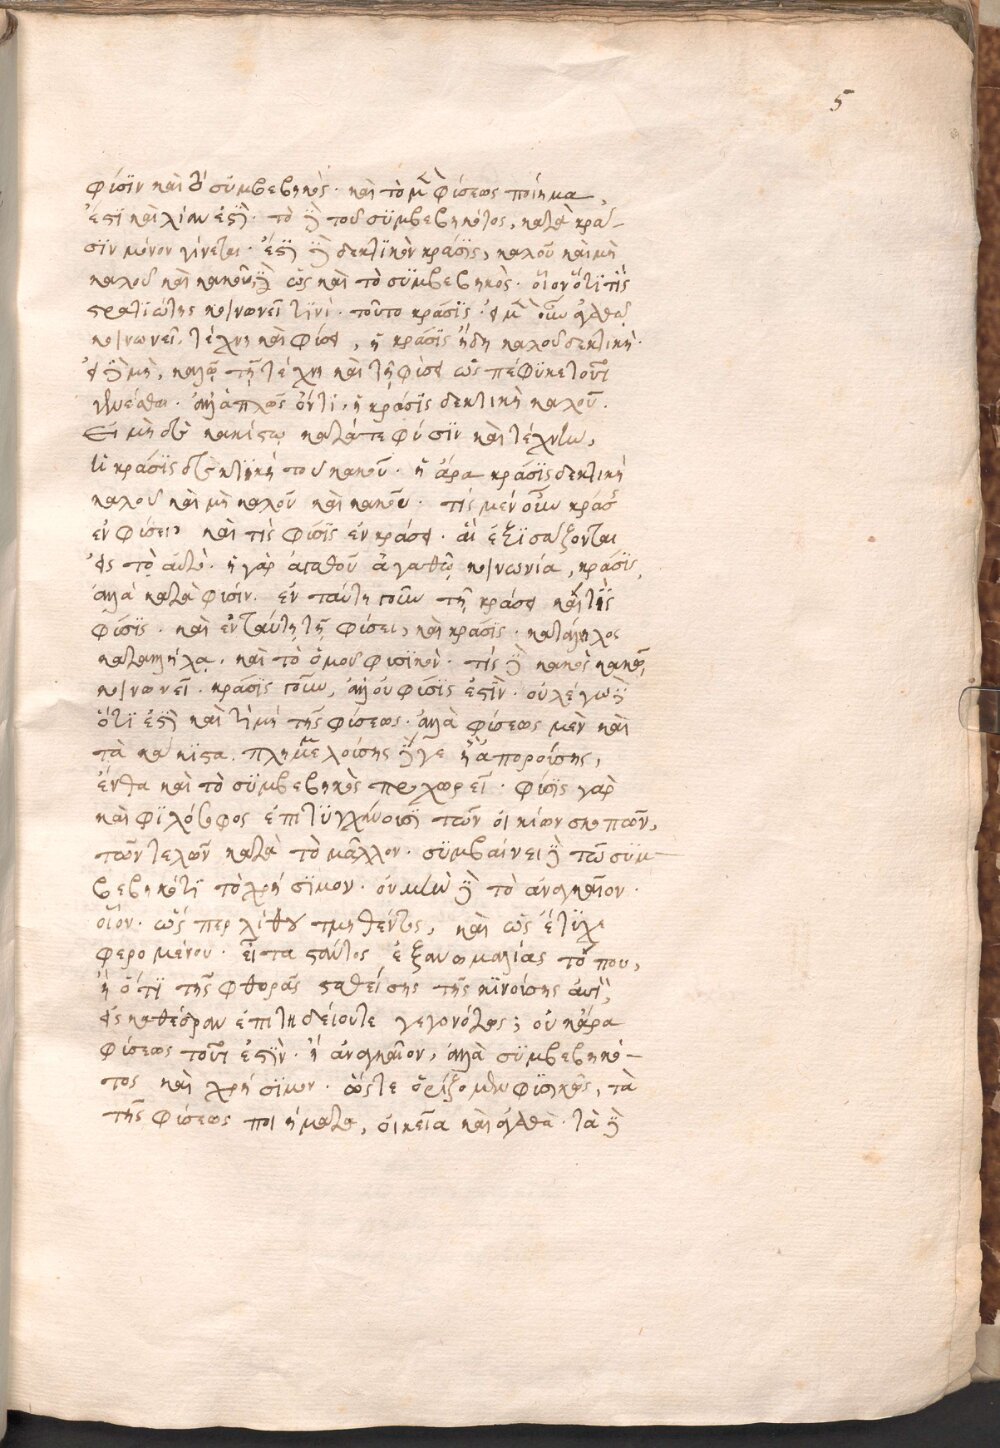 5
φύσϊν καὶ τὸ συμβεβηκός. καὶ τὸ μὲν φύσεως ποίημα,
ἐστὶ καὶ λίαν ἐστὶ. τὸ δὲ τοῦ συμβεβηκότος, κατὰ κρά-
σϊν μόνον γίνεται. ἐστὶ δὲ δεκτϊκὸν κράσϊς, καλοῦ καὶ μὴ
καλοῦ καὶ κακοῦ δὲ ὡς καὶ τὸ συμβεβηκὸς. οἷον ὅτι τὶς
στρατϊώτης κοινωνεῖ τϊνὶ. τοῦτο κράσϊς. εἰ μὲν οὖν ἀγαθῶ
κοινωνεῖ, τέχνη καὶ φύσει, ἡ κράσϊς ἤδη καλοῦ δεκτική.
εἰ δὲ μὴ, καλῶ τῆ τέχνη καὶ τῆ φύσει ὡς πέφϋκε τοῦτο
γενέσθαι. ἀλλ' ἁπλῶς ὄντι, ἡ κράσϊς δεκτικὴ καλοῦ.
Εἰ μὴ δὲ κακίστω κατά τε φύσϊν καὶ τέχνην,
ἡ κράσϊς δεκτϊκὴ τοῦ κακοῦ. ἡ ἄρα κράσϊς δεκτική
καλοῦ καὶ μὴ καλοῦ καὶ κακοῦ. τίς μέν οὖν κράσϊς
ἐν φύσει, καὶ τίς φύσϊς ἐν κράσει. αἳ ἐξϊσάζονται
εἰς τὸ αὐτό. ἡ γὰρ ἀγαθοῦ ἀγαθῶ κοινωνία, κράσϊς,
ἀλλὰ κατὰ φύσϊν. ἐν ταύτη τοίνυν τῆ κράσει καὶ τὶς
φύσϊς. καὶ ἐν ταύτη τῆ φύσει, καὶ κράσϊς. κατάλληλος
καταλλήλα. καὶ τὸ ὁμοῦ φυσϊκὸν. τίς δὲ κακὸς κακῶ
κοινωνεῖ. κράσϊς τοίνυν, ἀλλ' οὐ φύσϊς ἐστϊν. οὐ λέγω δὲ
ὅτι ἐστὶ καὶ τϊμὴ τῆς φύσεως. ἀλλὰ φύσεως μὲν καὶ
τὰ κάκϊστα. πλημμελούσης δέ γε ἢ ἀπορούσης,
ἔνθα καὶ τὸ συμβεβηκὸς προχωρεῖ. φύσϊς γὰρ
καὶ φϊλόσοφος ἐπιτϋγχάνουσϊ τῶν οἰκίων σκοπῶν,
τῶν τελῶν κατὰ τὸ μᾶλλον. συμβαίνει δὲ τῶ συμ-
βεβηκότϊ τὸ χρήσϊμον. οὐ μὴν δὲ τὸ ἀναγκαῖον.
οἷον. ὥσπερ λίθου τμηθέντος, καὶ ὡς ἔτϋχε
φερομένου. εἶτα στάντος ἐξ ἀνωμαλίας τόπου,
ἢ ὅτϊ τῆς φθορᾶς σταθείσης τῆς κϊνούσης αὐτὸν,
εἰς καθέδραν ἐπιτηδείου τε γεγονότος; οὐκ ἄρα
φύσεως τοῦτ' ἐστϊν. ἢ ἀναγκαῖον, ἀλλὰ συμβεβηκό-
τος καὶ χρήσϊμον. ὥστε ὁρίζομεν φϋσικῶς, τὰ
τῆς φύσεως ποιήματα, οἰκεῖα καὶ ἀγαθὰ. τὰ δὲ